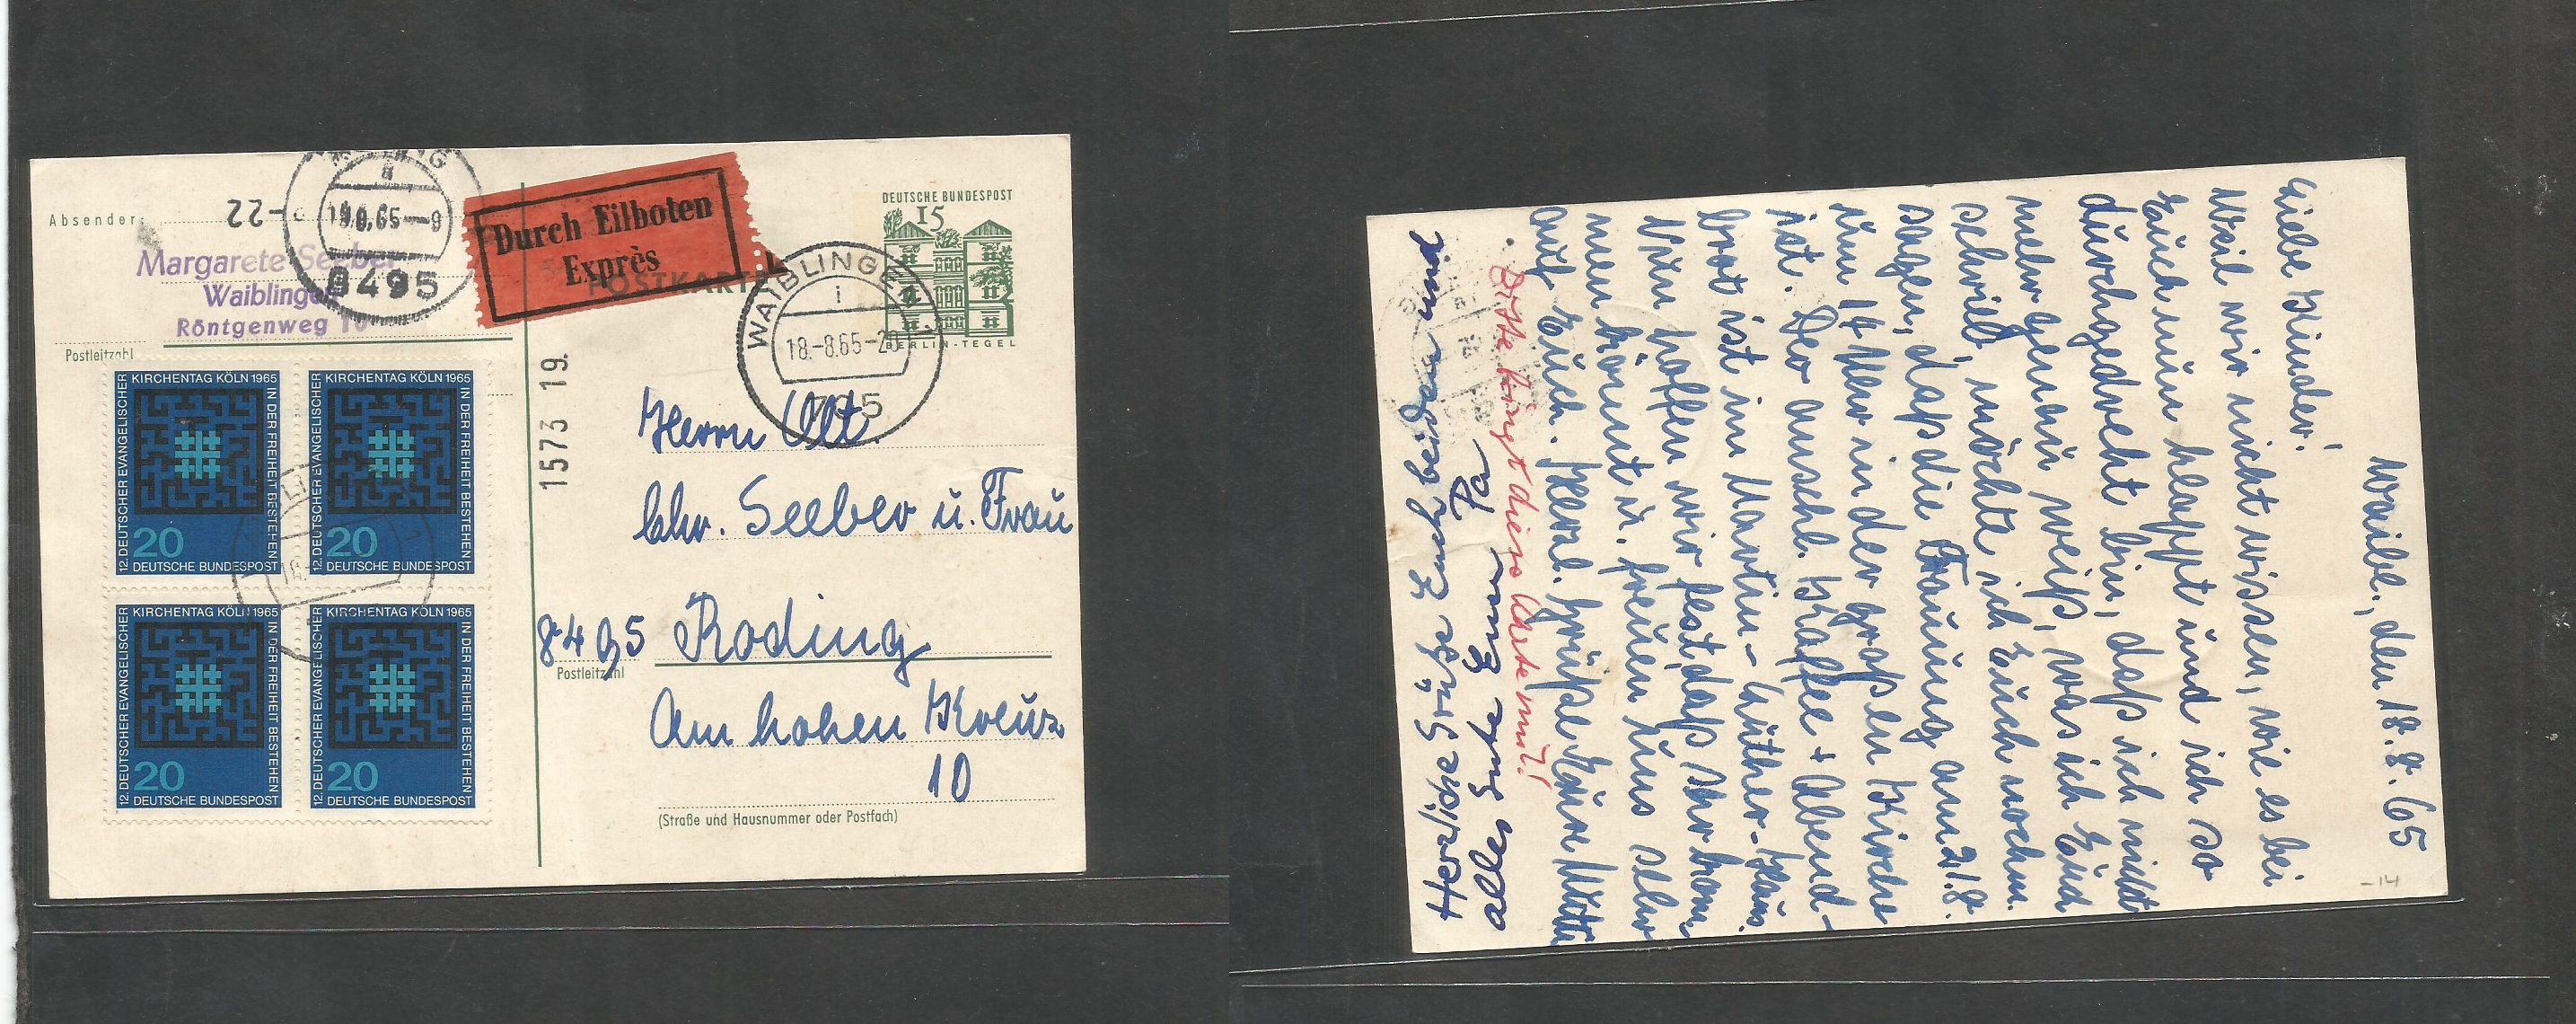 Absender:
Margarete Seeber
Waiblingen
Röntgenweg 10
Postleitzahl
22
19.8.65-9
8495
Durch Eilboten
Exprès
POSTKARTE
DEUTSCHE BUNDESPOST
15
BERLIN-TEGEL
WAIBLINGEN
i
18.-8.65-20
705
1573 19.
12. DEUTSCHER EVANGELISCHER KIRCHENTAG KÖLN 1965 IN DER FREIHEIT BESTEHEN
20
DEUTSCHE BUNDESPOST
12. DEUTSCHER EVANGELISCHER KIRCHENTAG KÖLN 1965 IN DER FREIHEIT BESTEHEN
20
DEUTSCHE BUNDESPOST
12. DEUTSCHER EVANGELISCHER KIRCHENTAG KÖLN 1965 IN DER FREIHEIT BESTEHEN
20
DEUTSCHE BUNDESPOST
12. DEUTSCHER EVANGELISCHER KIRCHENTAG KÖLN 1965 IN DER FREIHEIT BESTEHEN
20
DEUTSCHE BUNDESPOST
Herrn
Chr. Seeber u. Frau
8495 Roding
Postleitzahl
Am hohen Kreuz
10
(Straße und Hausnummer oder Postfach)
Waibl., den 18.8.65
Liebe Kinder!
Weil wir nicht wissen, wie es bei
Euch nun klappt und ich so
durchgedreht bin, daß ich nicht
mehr genau weiß, was ich Euch
schrieb, möchte ich Euch nochm.
sagen, daß die Trauung am 21.8.
um 14 Uhr in der großen Kirche
ist. Der anschl. Kaffee + Abend-
brot ist im Martin-Luther-Haus.
Nun hoffen wir fest daß Ihr kom
men könnt u. freuen uns sehr
auf Euch. Herzl. Grüße Eure Mutti
Bitte bringt diese Karte mit!
Herzliche Grüße Euch beiden und
alles Gute Euer Pa
-14